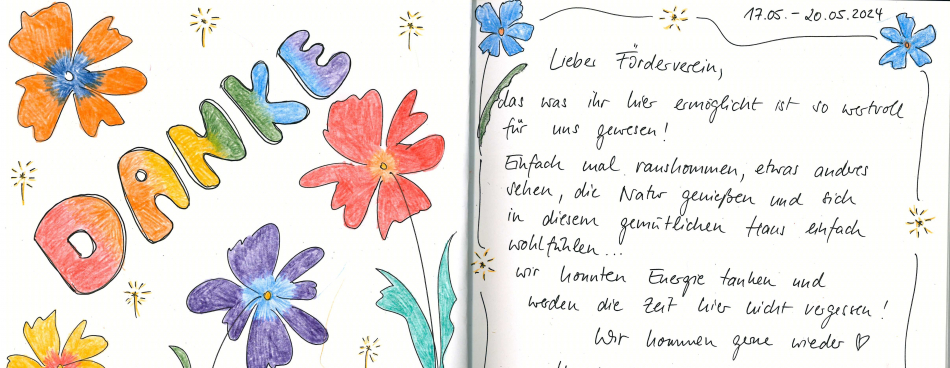 DANKE
17.05. – 20.05.2024
Lieber Förderverein,
das was ihr hier ermöglicht ist so wertvoll
für uns gewesen!
Einfach mal rauskommen, etwas anderes
sehen, die Natur genießen und sich
in diesem gemütlichen Haus einfach
wohlfühlen...
wir konnten Energie tanken und
werden die Zeit hier nicht vergessen!
Wir kommen gerne wieder ♡